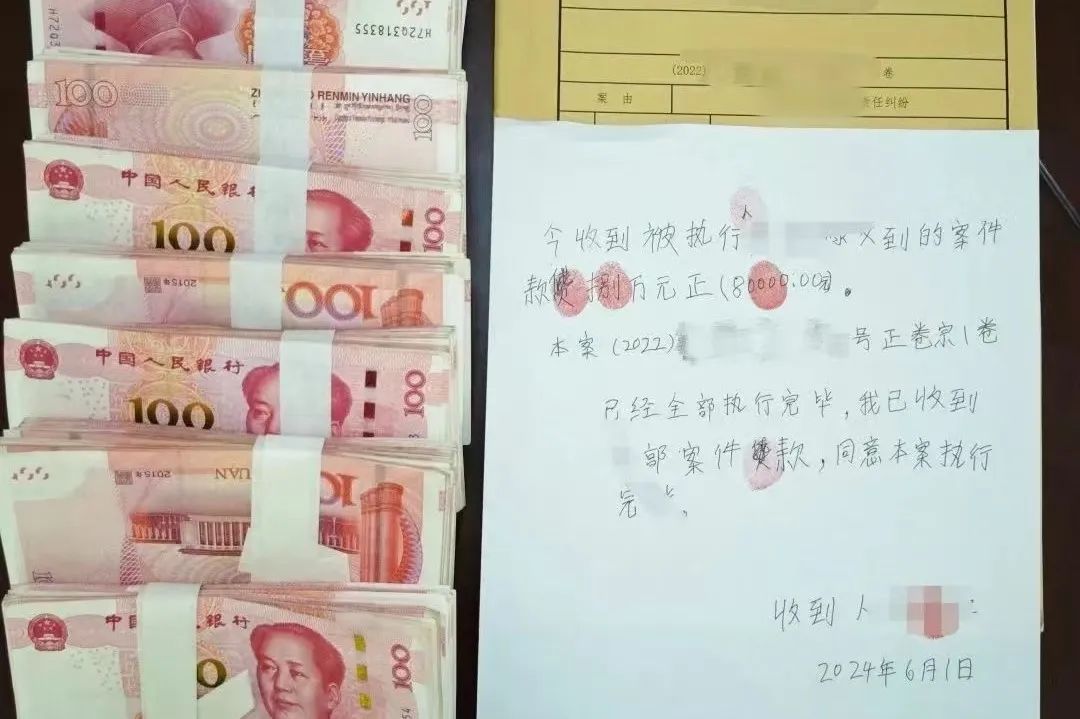 H72Q318355
100
RENMINYINHANG
100
中国人民银行
100
100
2015年
100
中国人民银行
100
100
2015年
UAN
100
中国人民银行
100
(2022) 卷
案由
责任纠纷
今收到被执行人 到的案件
款 捌万元正(80000.00元)。
本案(2022) 号正卷宗1卷
已经全部执行完毕,我已收到
部案件 款,同意本案执行
完
收到人
2024年6月1日